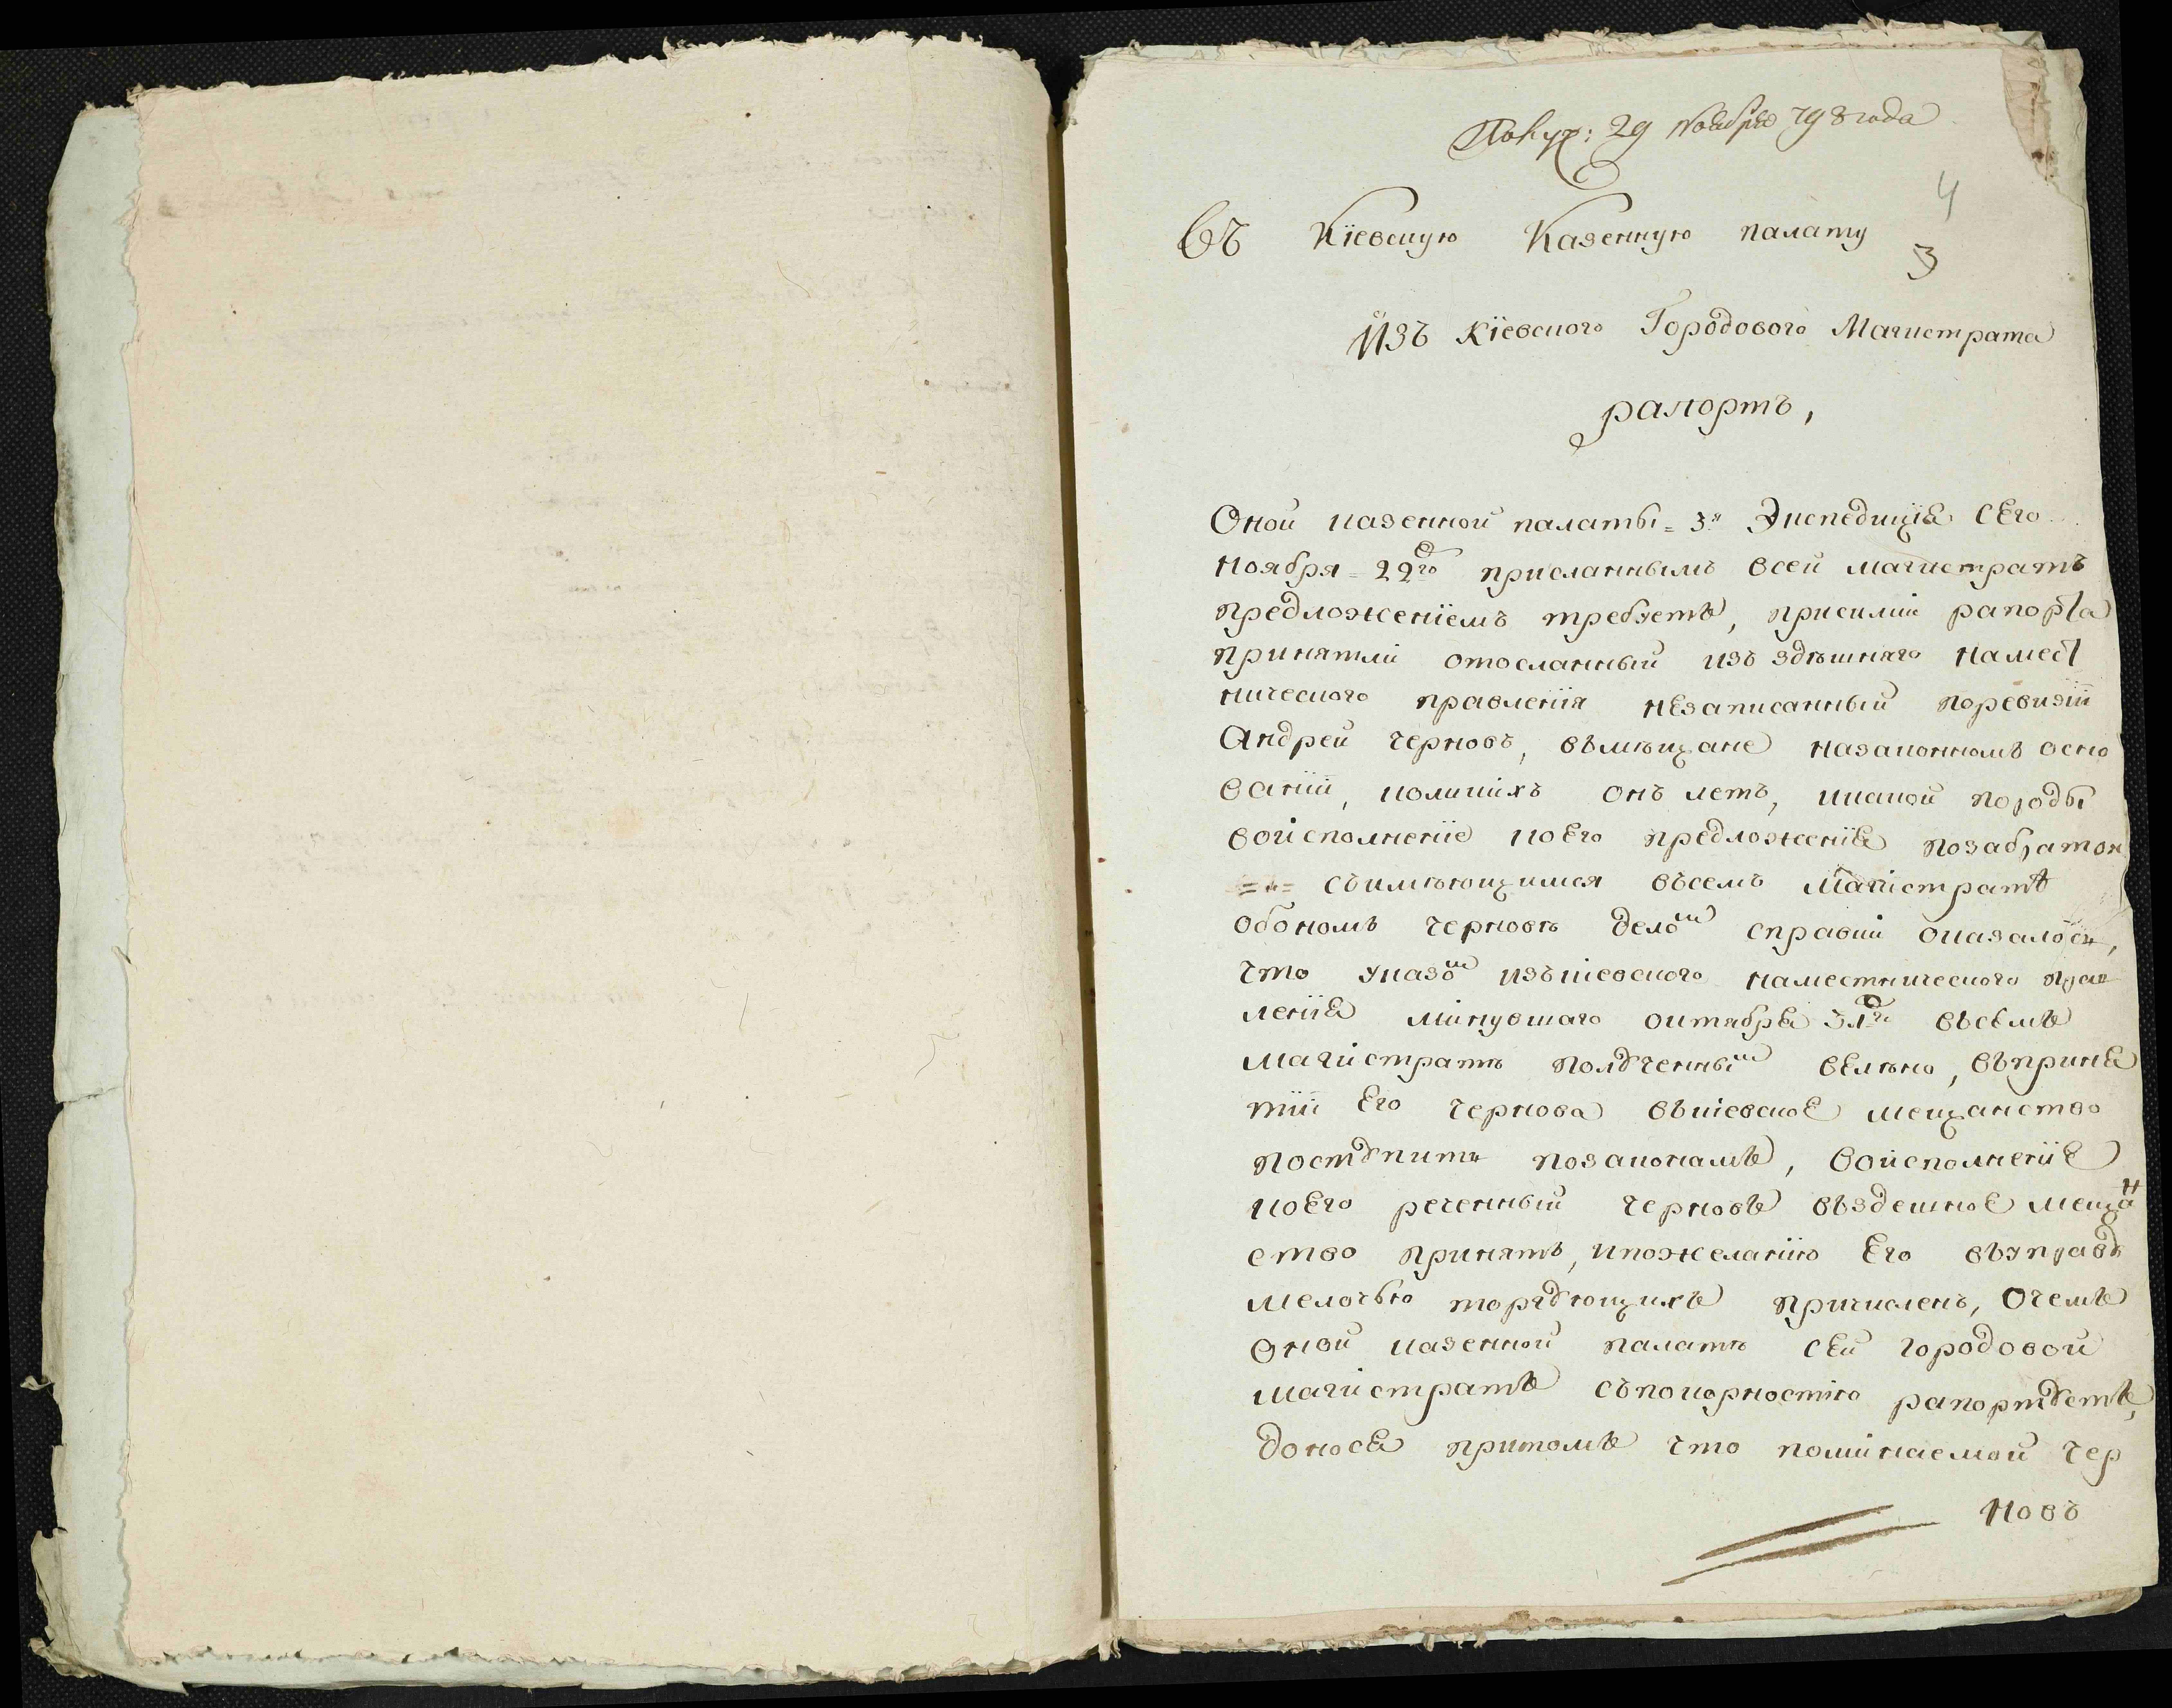 29 ноября 798 года
4
Въ Кіевскую Казенную палату
3
Изъ Кіевского Городового Магистрата
рапортъ,
Оной казенной палаты = 3я Экспедиція сего
ноября = 22го присланнымъ всей магистратъ
предложеніемъ требуетъ, присилки рапорта
принятли отосланный изъ здѣшняго намест
нического правленія незаписанный поревизіи
Андрей Черновъ, въмѣщане назаконномъ осно
ваніи, коликихъ онъ летъ, икакой породы
воисполненіе коего предложенія
съимѣющимся въсемъ магистратѣ
обономъ Черновѣ деломъ справки оказалось,
что указомъ изъкіевского наместнического прав
ленія минувшаго октября 31го въсемъ
магистратѣ полученнымъ велѣно, въприня
тіи его Чернова въкіевское мещанство
поступить позаконамъ, воисполненіе
коего реченный Черновъ въздешное мещан
ство принятъ, ипожеланію его въуправу
мелочью торгующихъ причисленъ, очемъ
оной казенной палатѣ сей городовой
магистратъ съпокорностію рапортуетъ,
донося притомъ что поминаемой Чер
новъ